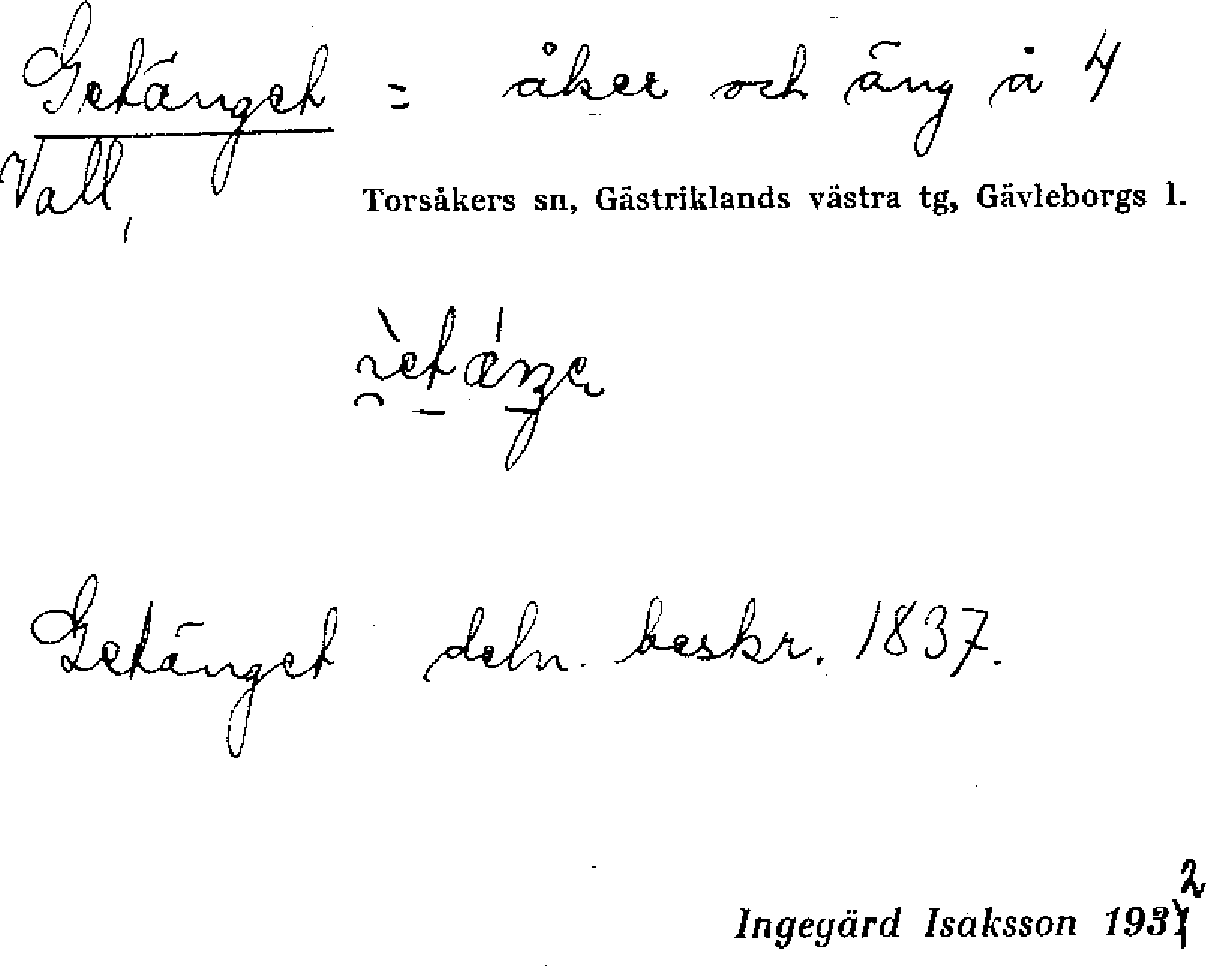 Getänget = åker och äng å 4
Vall,
Torsåkers sn, Gästriklands västra tg, Gävleborgs l.
Getänget deln. beskr. 1837.
Ingegärd Isaksson 1932